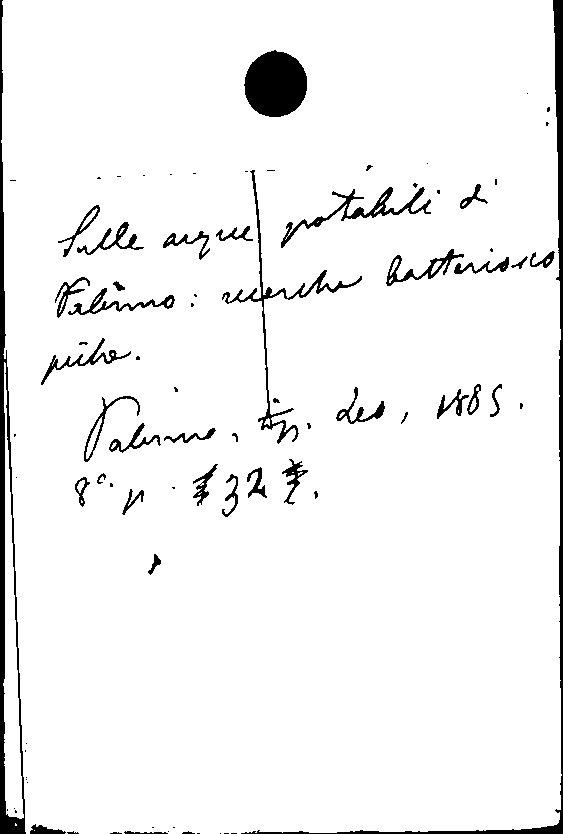 Sulle acque potabili di
Palermo: ricerche batterosco
piche.
Palermo, tip. Leo, 1885.
8º. p. 32.